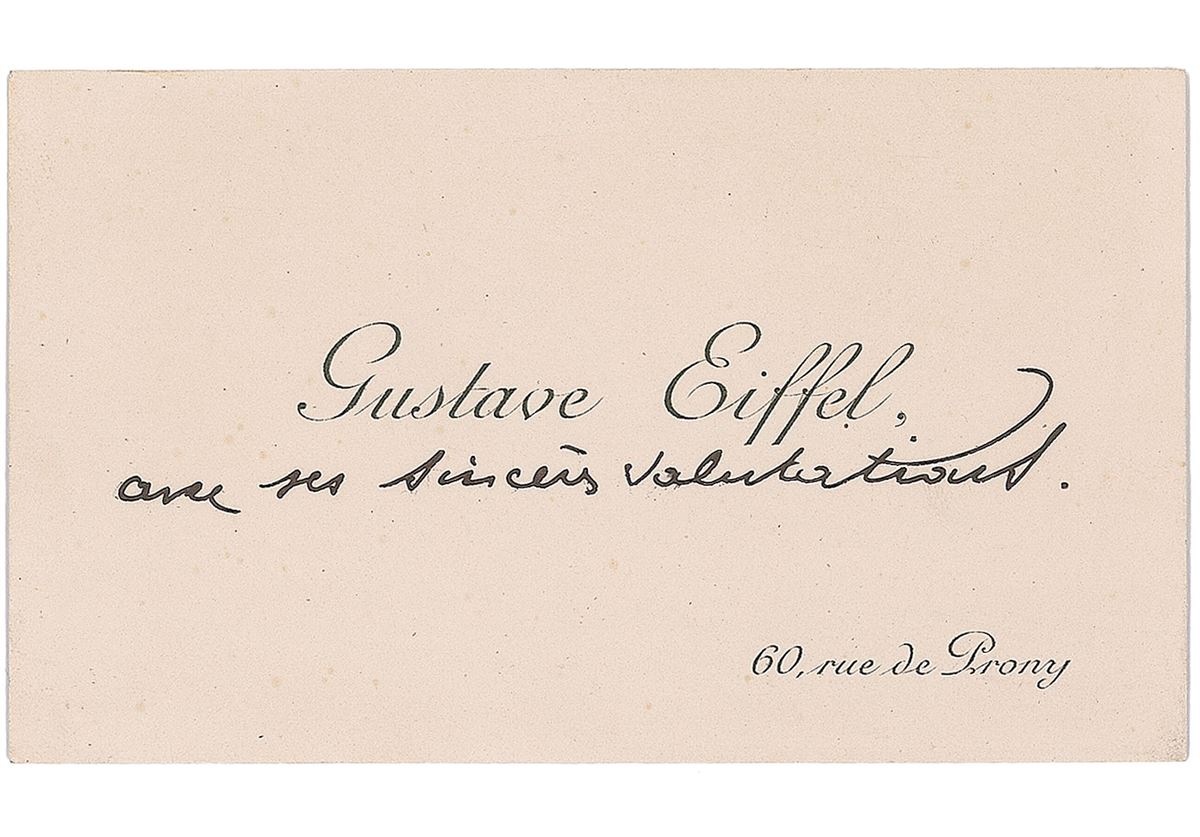 Gustave Eiffel,
avec ses sincères salutations.
60, rue de Prony